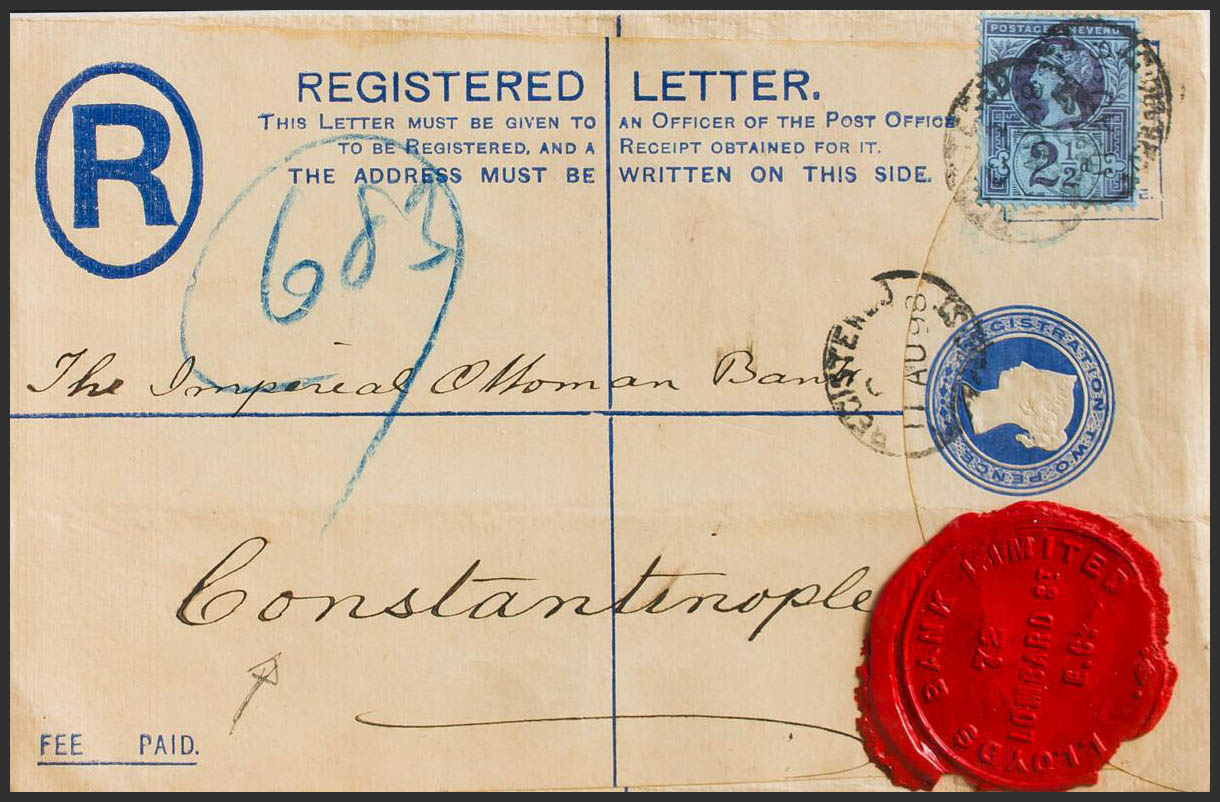 POSTAGE & REVENUE
2½d
R
REGISTERED LETTER.
THIS LETTER MUST BE GIVEN TO AN OFFICER OF THE POST OFFICE
TO BE REGISTERED, AND A RECEIPT OBTAINED FOR IT.
THE ADDRESS MUST BE WRITTEN ON THIS SIDE.
683
REGISTERED
11 AU 98
REGISTRATION TWO PENCE
The Imperial Ottoman Bank
Constantinople
LLOYDS BANK LIMITED
72
LOMBARD ST
E.C.
FEE PAID.